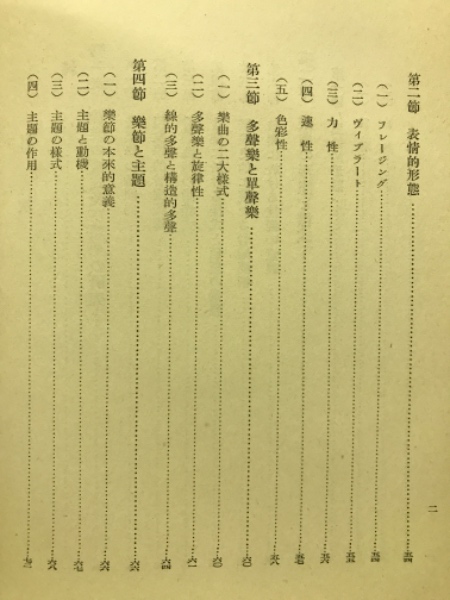 第二節 表情的形態……五四
(一) フレージング……五四
(二) ヴィブラート……五五
(三) 力性……五六
(四) 速性……五七
(五) 色彩性……五八
第三節 多聲樂と單聲樂……六〇
(一) 樂曲の二大樣式……六〇
(二) 多聲樂と旋律性……六一
(三) 線的多聲と構造的多聲……六四
第四節 樂節と主題……六六
(一) 樂節の本來的意義……六六
(二) 主題と動機……六七
(三) 主題の樣式……六八
(四) 主題の作用……七三
二